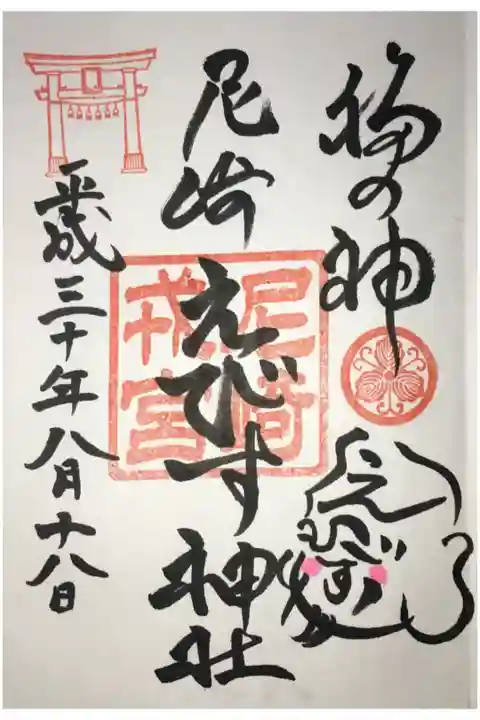 福の神
えびす
尼崎えびす神社
尼崎
戎宮
平成三十年八月十八日